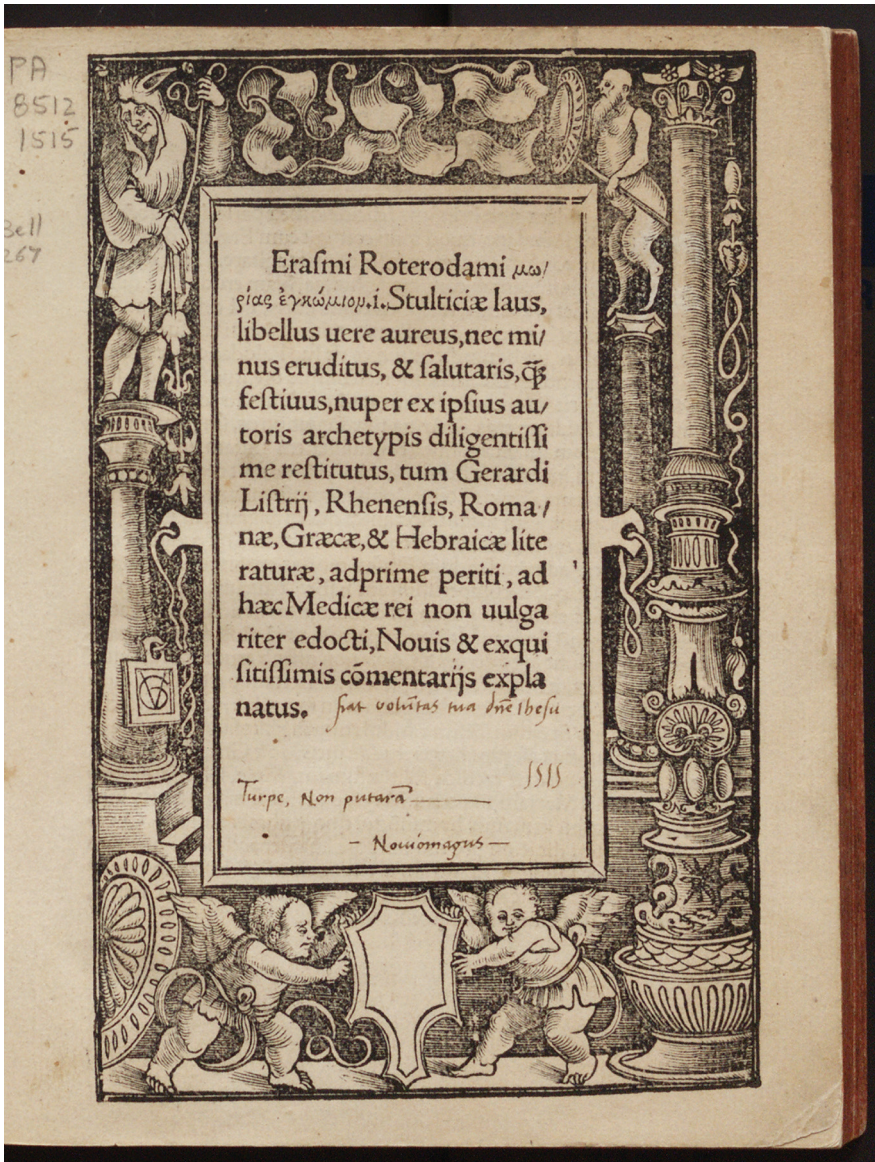 PA
8512
1515
Bell
267
Eraſmi Roterodami μω/
ρίας ἐγκώμιον.i.Stulticiæ laus,
libellus uere aureus,nec mi/
nus eruditus, & ſalutaris,q̄ꝫ
feſtiuus,nuper ex ipſius au/
toris archetypis diligentiſſi
me reſtitutus, tum Gerardi
Liſtrij, Rhenenſis, Roma/
næ, Græcæ,& Hebraicæ lite
raturæ, adprime periti, ad
hæc Medicæ rei non uulga
riter edocti, Nouis & exqui
ſitiſſimis cōmentarijs expla
natus. fiat volūtas tua dn̄e Iheſu
1515
Turpe, Non putarā
– Nouiomagus –
VG